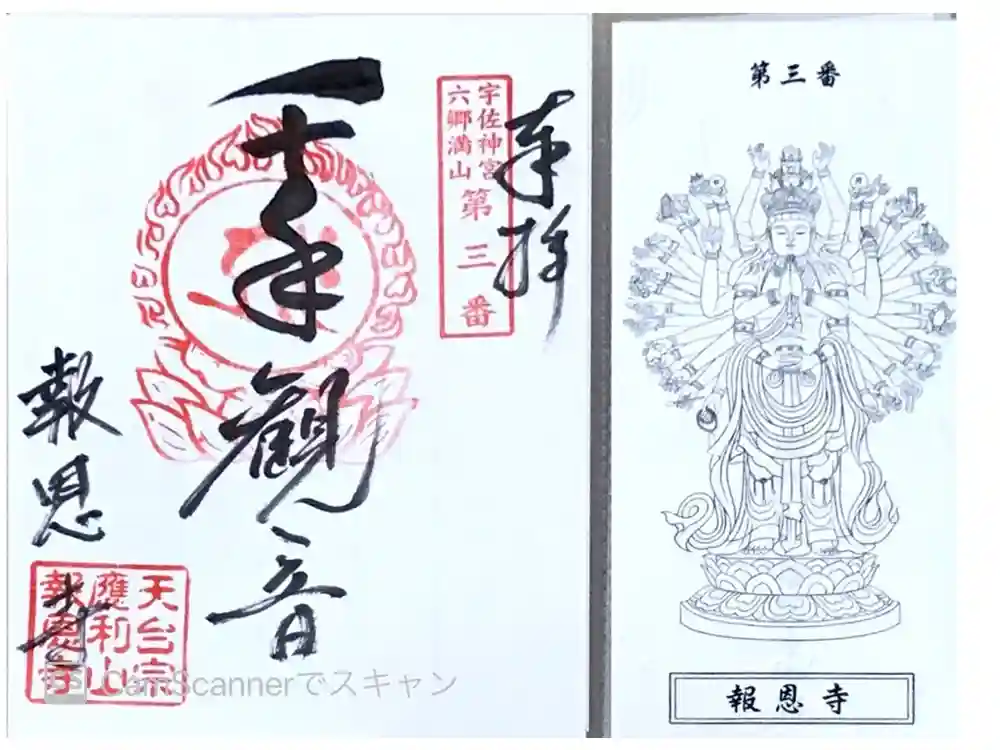 奉拝
宇佐神宮
六郷満山
第三番
十一手観音
報恩寺
天台宗
應利山
報恩寺
CS CamScannerでスキャン
第三番
報恩寺